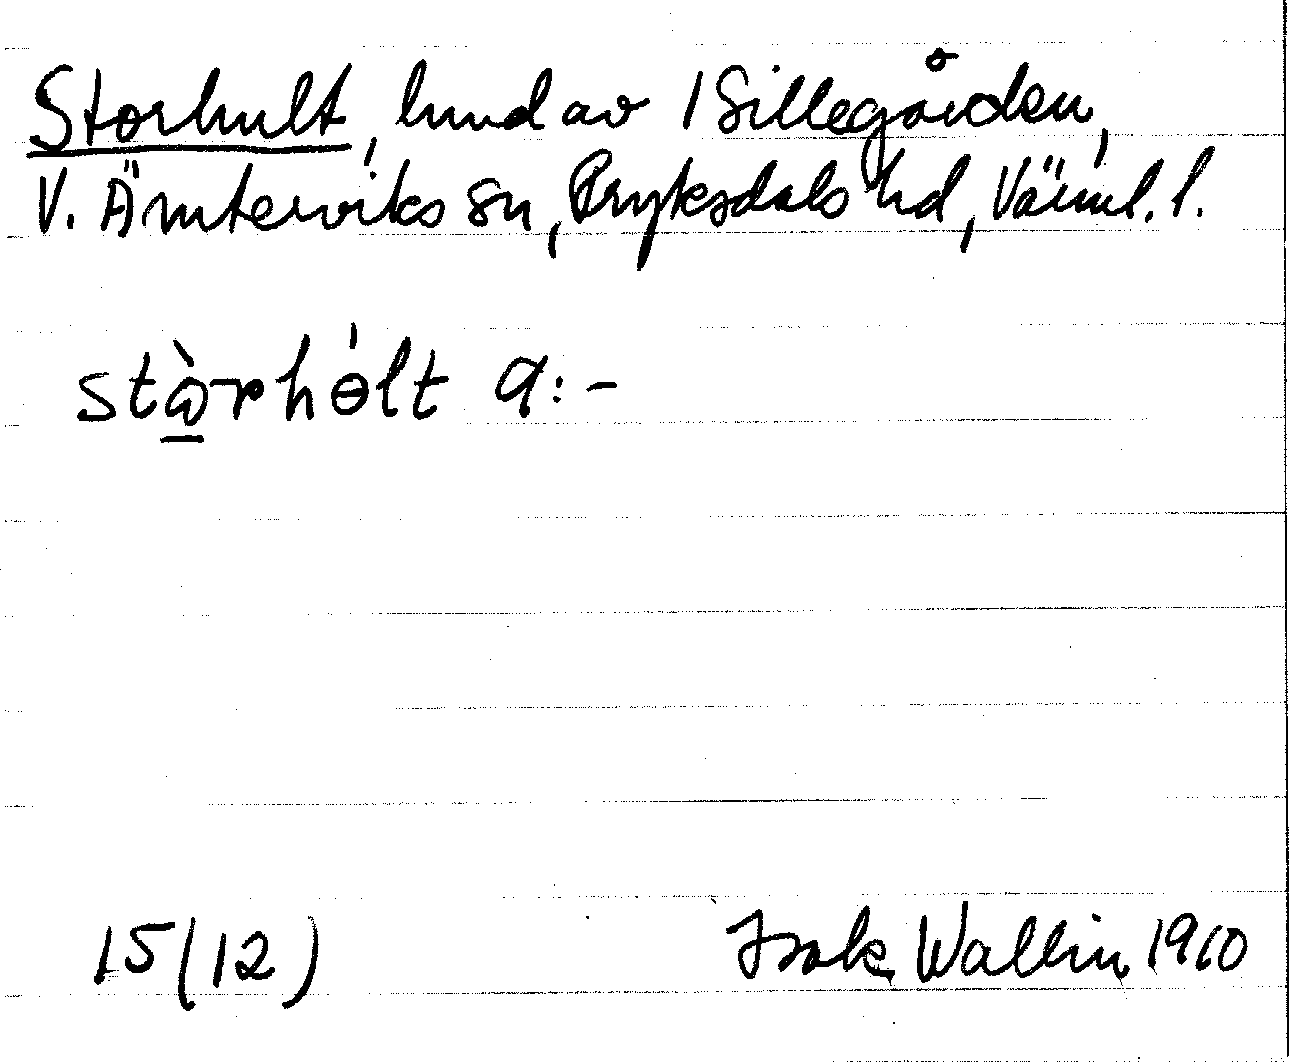 Storhult, hmd av 1 Sillegården,
V. Ämterviks sn, Fryksdals hd, Värml. l.
stɷ̀rhɵ́lt q:-
15(12) Isak Wallin 1910